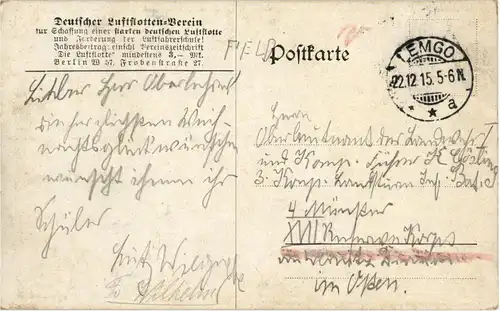 Deutscher Luftflotten-Verein
zur Schaffung einer starken deutschen Luftflotte
und Förderung der Luftfahrerschule!
Jahresbeitrag einschl Vereinszeitschrift
"Die Luftflotte" mindestens 3,— Mk.
Berlin W 57, Frobenstraße 27.
Lieber Herr Oberlehrer!
die herzlichsten Weih-
nachtsglückwünsche
wünscht ihnen ihr
Schüler
Fritz
Wilhelm
FELD
Postkarte
LEMGO
22.12.15.5-6N.
* a
Herrn
Oberleutnant der Landwehr
und Komp. Führer K.
3. Komp. Landsturm Inf. Bat.
4 Münster
XVII Reserve Korps
im Osten.